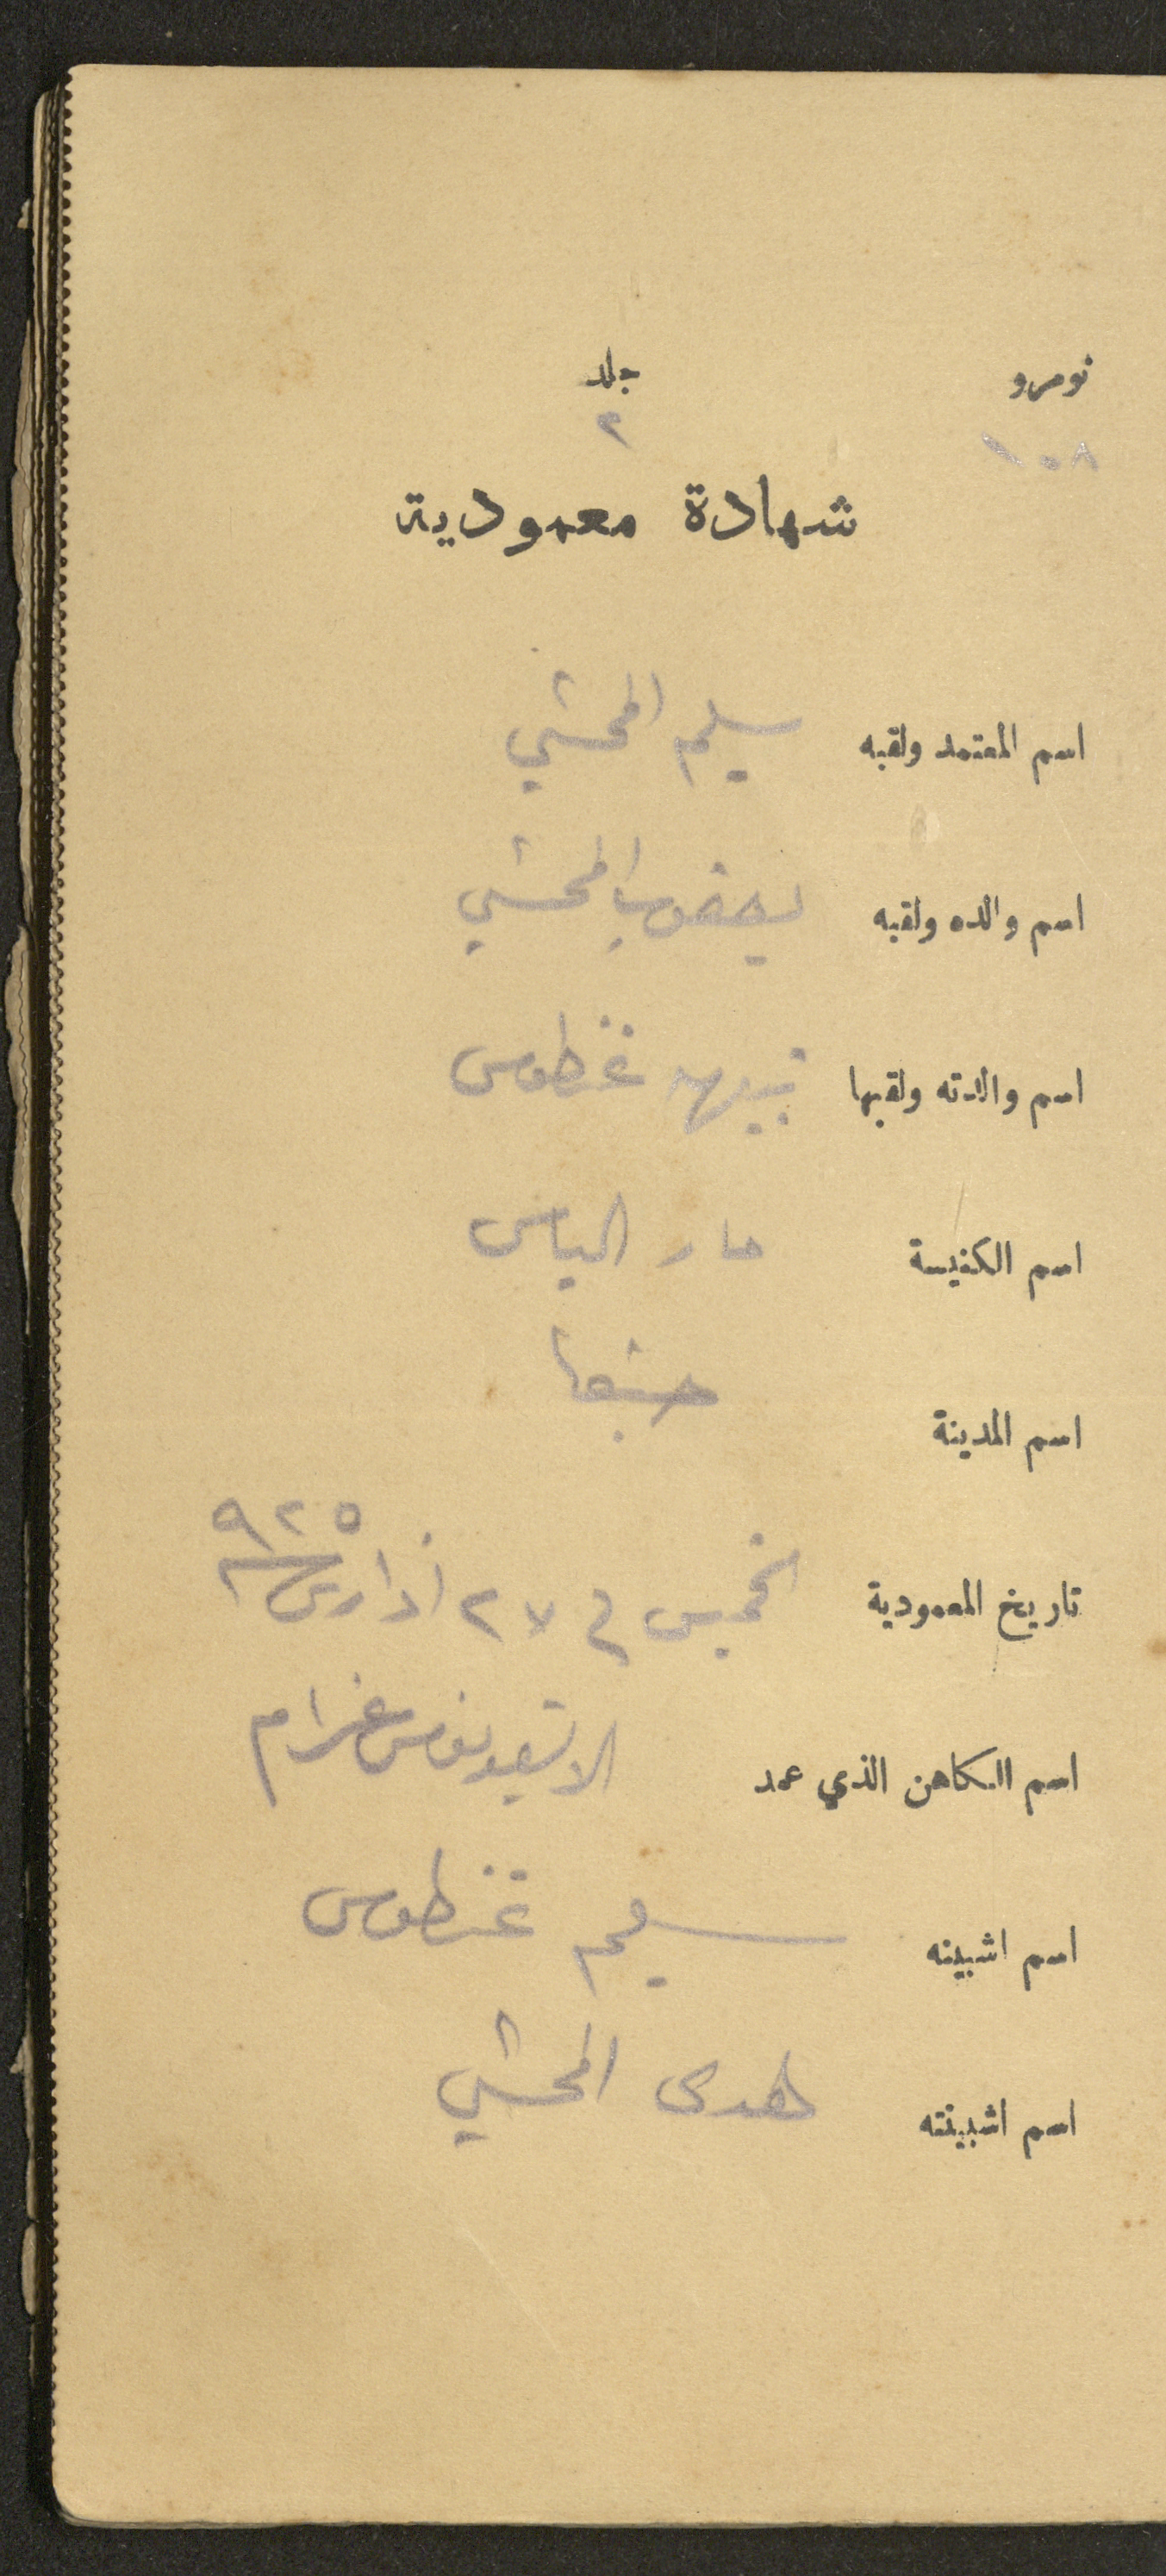 نومرو جلد
١٠٨ ٢
شهادة معمودية
اسم المعتمد ولقبه سليم المحشي
اسم والده ولقبه يعقوب المحشي
اسم والدته ولقبها نبيهه غطوس
اسم الكنيسة مار الياس
اسم المدينة حيفا
تاريخ المعمودية الخميس في ٢٧ اذار سنة ٩٢٥
اسم الكاهن الذي عمد الاب
اسم اشبينه سليم غنطوس
اسم اشبينته هدى المحشي